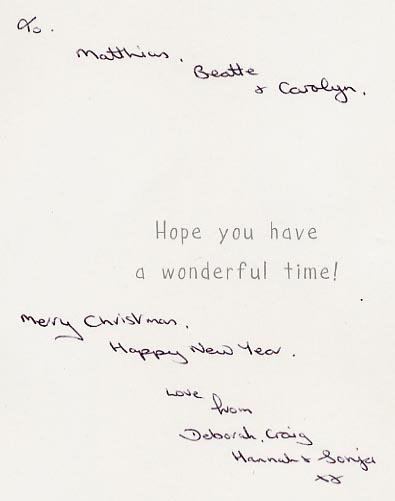 To.
Matthias.
Beatte
& Carolyn.
Hope you have
a wonderful time!
Merry Christmas.
Happy New Year.
Love
from
Deborah, Craig
Hannah & Sonja
xx